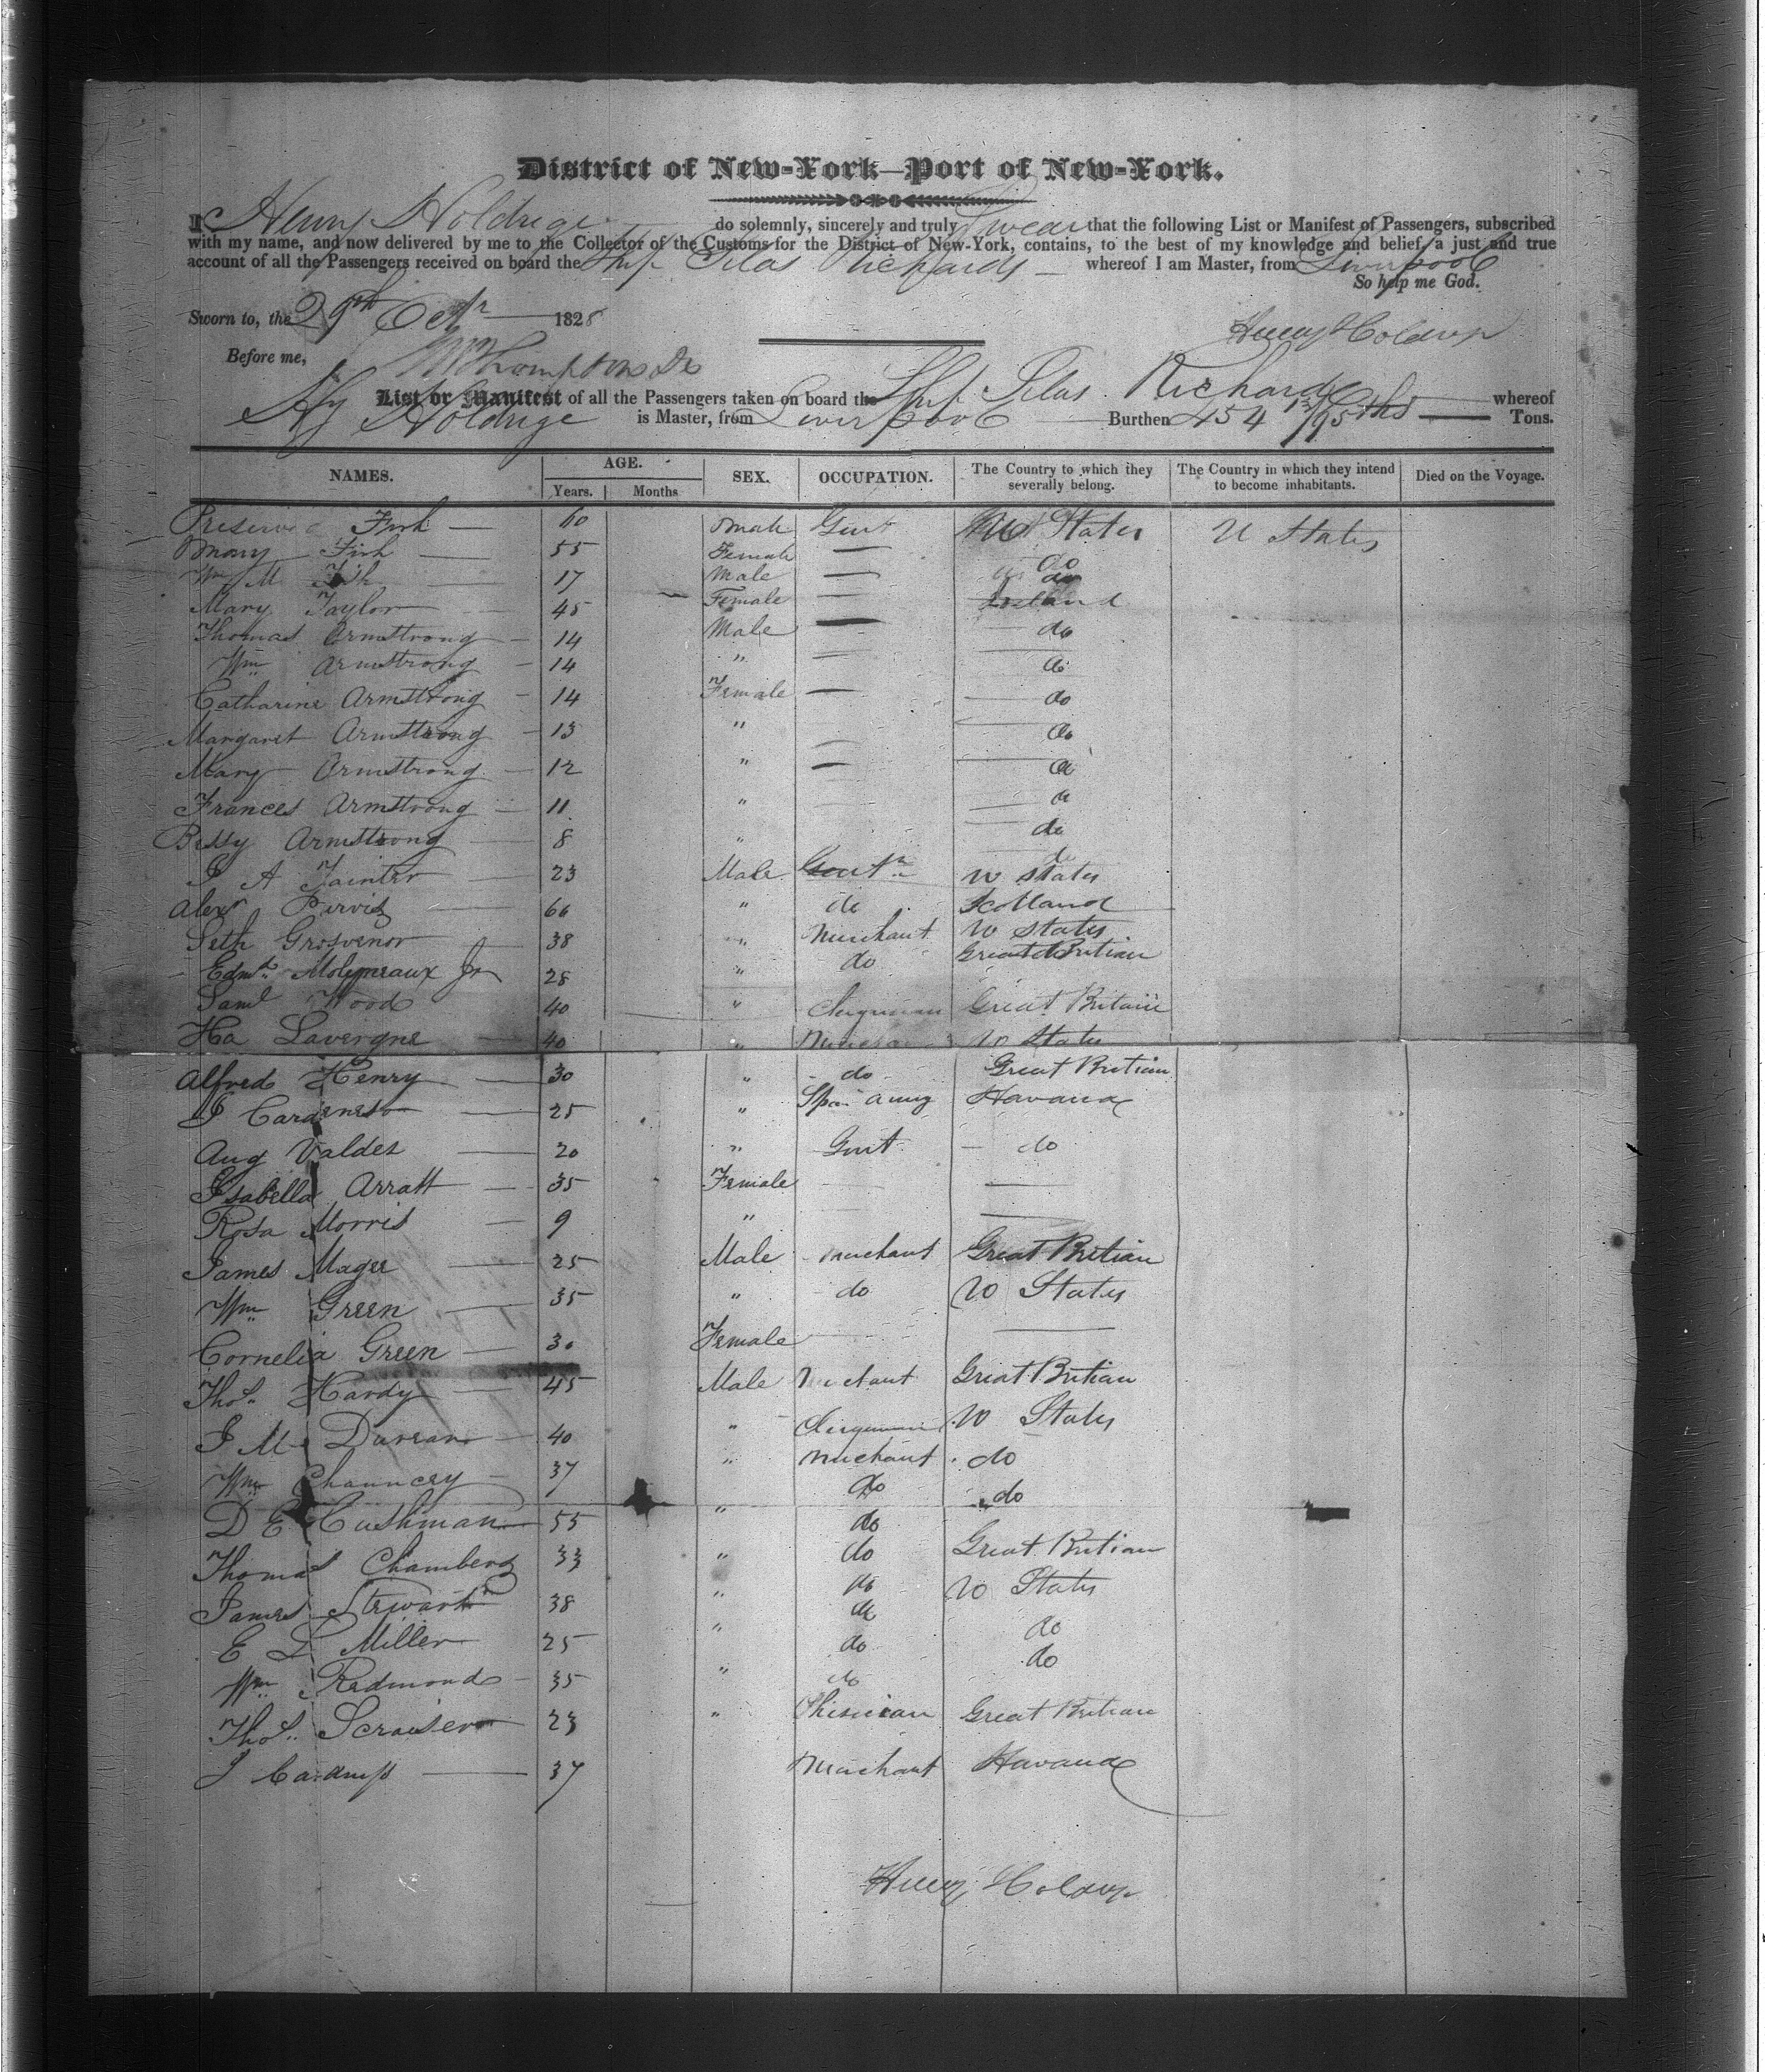 District of New-York—Port of New-York.
I Henry Holdrege do solemnly, sincerely and truly Swear that the following List or Manifest of Passengers, subscribed
with my name, and now delivered by me to the Collector of the Customs for the District of New-York, contains, to the best of my knowledge and belief, a just and true
account of all the Passengers received on board the Ship Silas Richards whereof I am Master, from Liverpool
So help me God.
Sworn to, the 29th Octr 1828
Henry Holdrege
Before me,
List or Manifest of all the Passengers taken on board the Ship Silas Richards whereof
Hy Holdrege is Master, from Liverpool Burthen 454 /95ths Tons.
NAMES. AGE. Years. Months SEX. OCCUPATION. The Country to which they severally belong. The Country in which they intend to become inhabitants. Died on the Voyage.
Preserved Fish — 60 Male Gent U States U States
Mary Fish — 55 Female — do
Wm M Fish — 17 Male — do
Mary Taylor — 45 Female — Ireland
Thomas Armstrong — 14 Male — do
Wm Armstrong — 14 " — do
Catharine Armstrong — 14 Female — do
Margaret Armstrong — 13 " — do
Mary Armstrong — 12 " — do
Frances Armstrong — 11 " do
Bessy Armstrong — 8 " do
J A Tainter — 23 Male Gentn U States
Alexr Purvis — 66 " do Scotland
Seth Grosvenor — 38 " Merchant U States
Edmd Molyneaux Jr 28 " do Great Britian
Saml Wood 40 " Clergyman Great Britain
Ha Lavergne — 40 " U States
Alfred Henry — 30 " do Great Britian
J Cardeneso — 25 " Span Army Havana
Aug Valdes — 20 " Gent do
Isabella Arratt — 35 Female —
Rosa Morris — 9 " —
James Magee — 25 Male Merchant Great Britian
Wm Green — 35 " do U States
Cornelia Green — 30 Female —
Thos Hardy — 45 Male Merchant Great Britian
J M 40 " Clergyman U States
Wm Chauncey — 37 " Merchant do
D E Cushman 55 " do do
Thomas Chambers 33 " do Great Britian
James Stewart 38 " do U States
E L Miller 25 " do do
Wm Redmond — 35 " do do
Thos 23 " Phisician Great Britian
J 37 Merchant Havana
Henry Holdrege